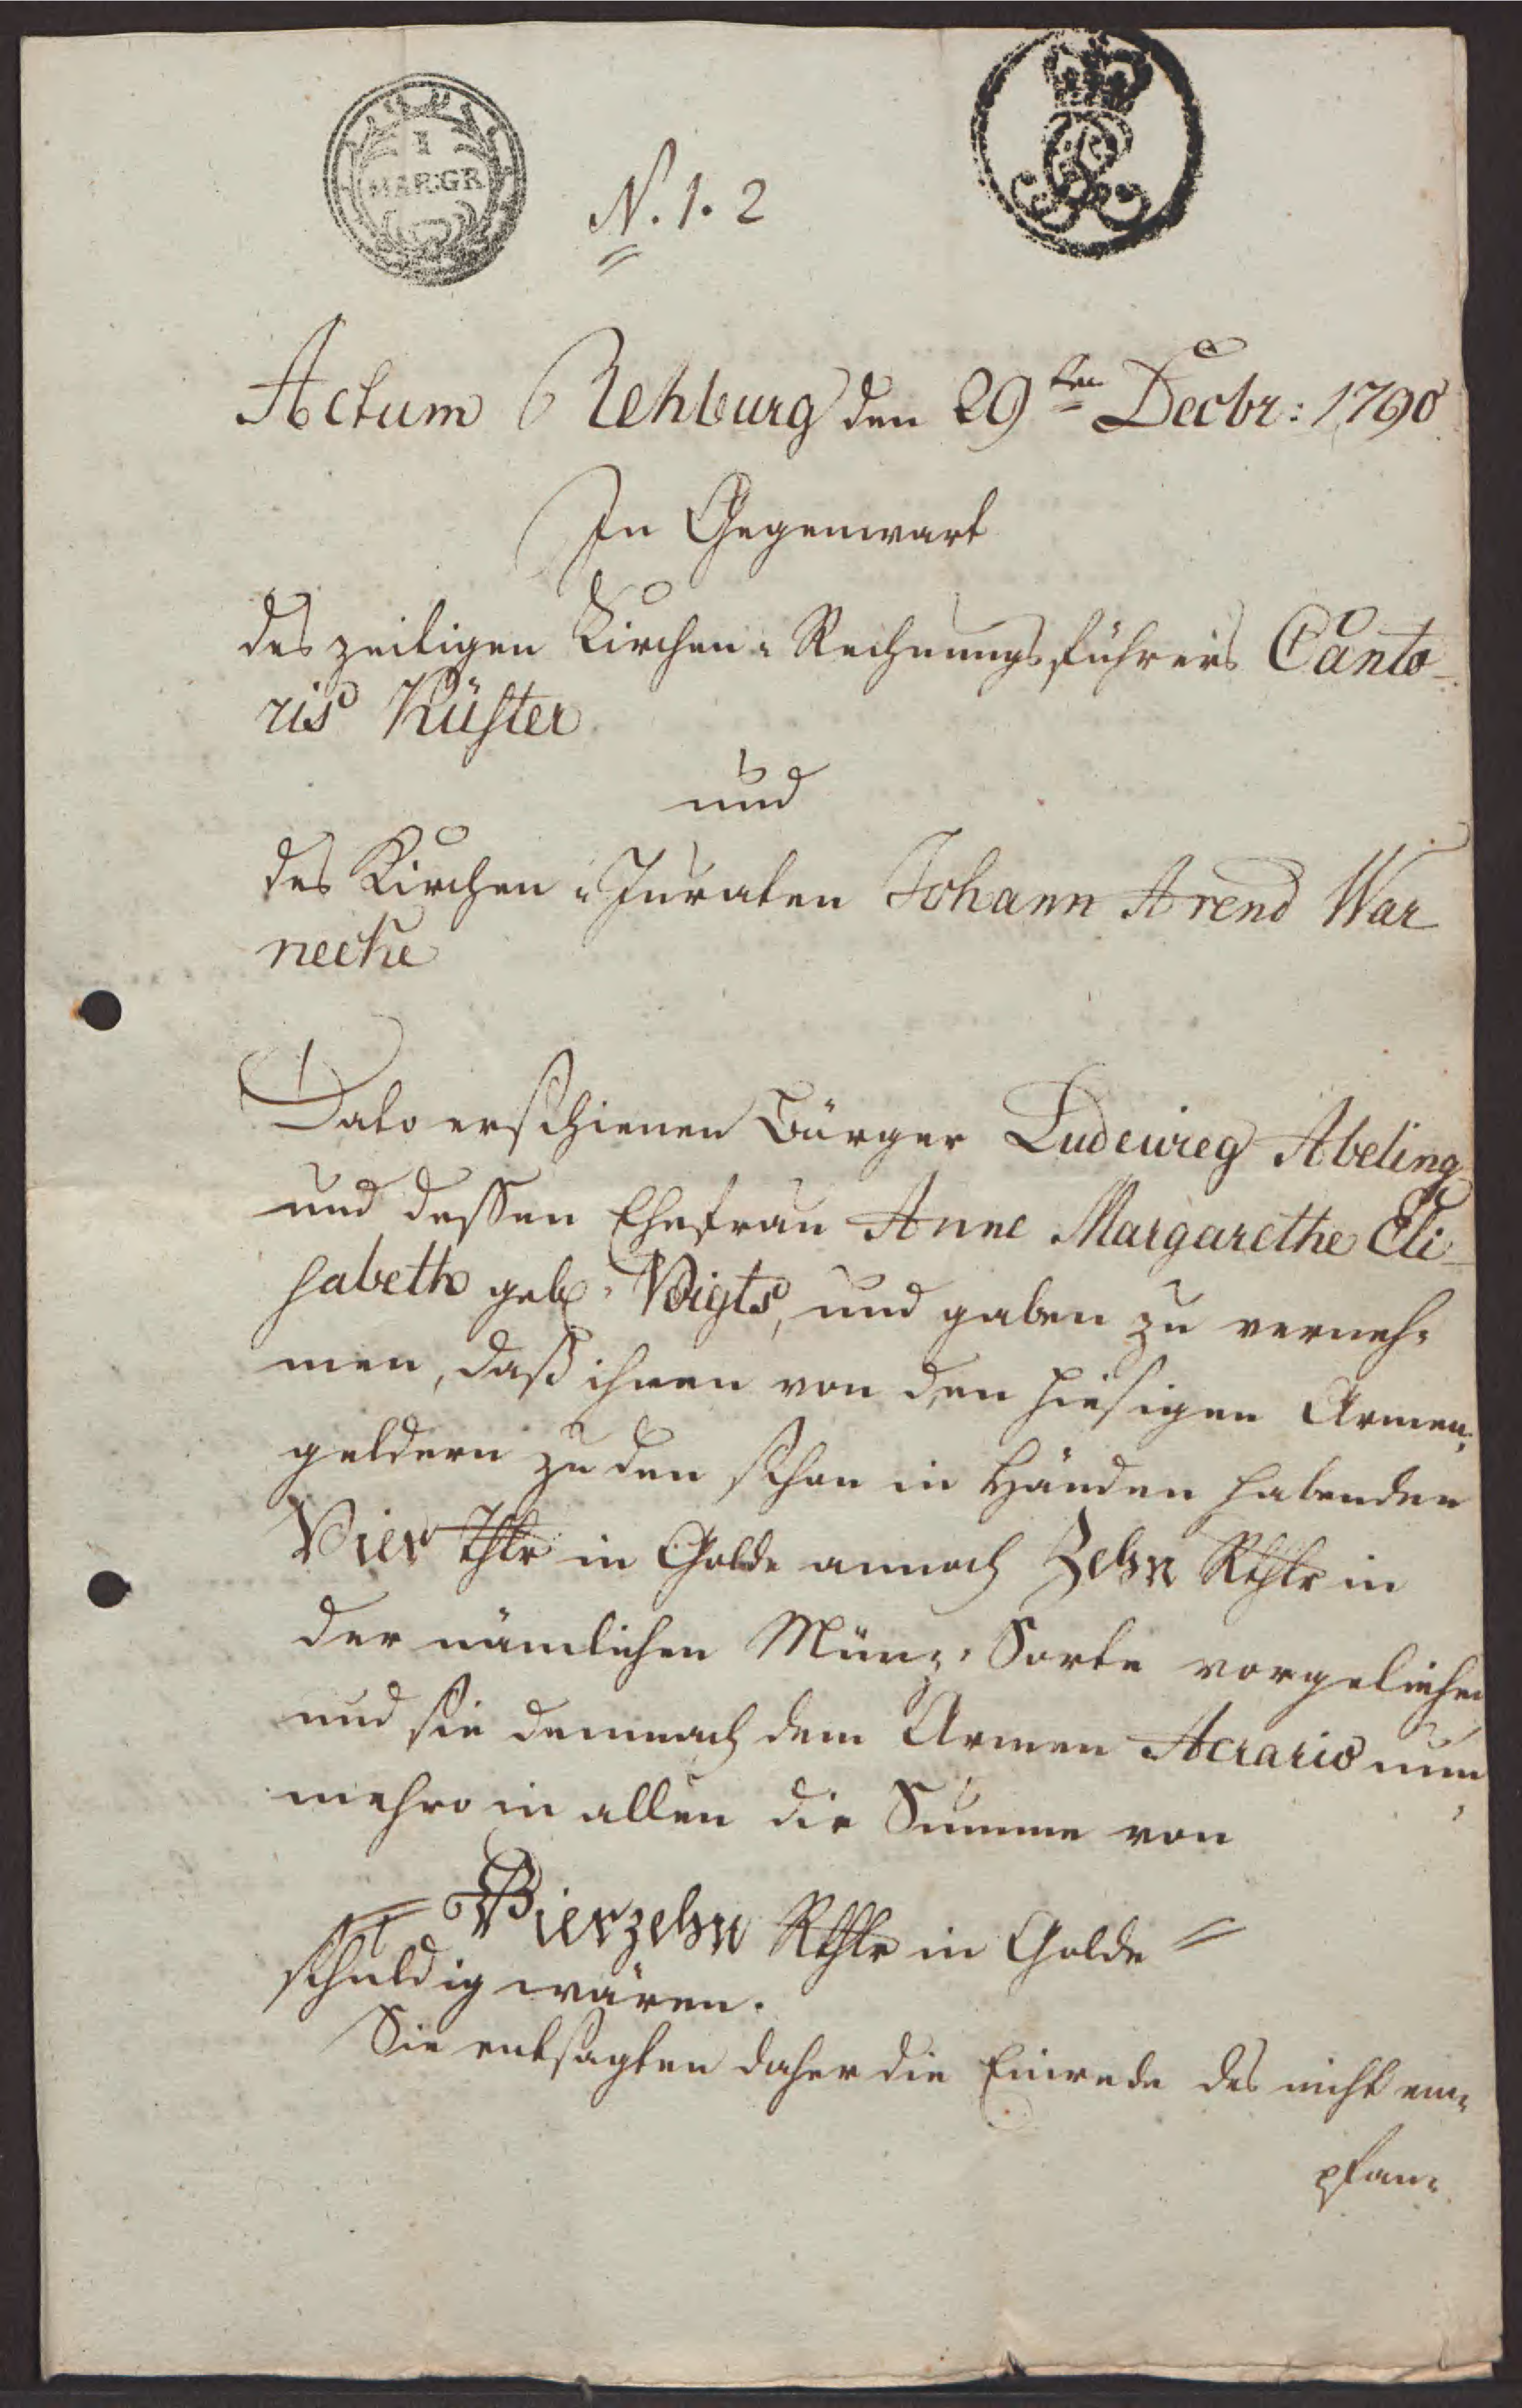 1
MAR:GR
N. 1. 2
GR
Actum Rehburg den 29ten Decbr: 1790
In Gegenwart
des zeitigen Kirchen-Rechnungsführers Canto-
ris Küster
und
des Kirchen-Juraten Johann Arend War
necke
Dato erschienen Bürger Ludewieg Abeling
und dessen Ehefrau Anne Margarethe Eli-
sabeth geb. Voigts, und gaben zu verneh-
men, daß ihnen von den hiesigen Armen-
geldern zu den schon in Händen habenden
Vier Thlr in Golde annoch Zehn Rthlr in
der nämlichen Münz-Sorte vorgeliehen
und sie demnach dem Armen Aerario nun-
mehro in allen die Summe von
= Vierzehn Rthlr in Golde =
schuldig wären.
Sie entsagten daher die Einrede des nicht em-
pfan-